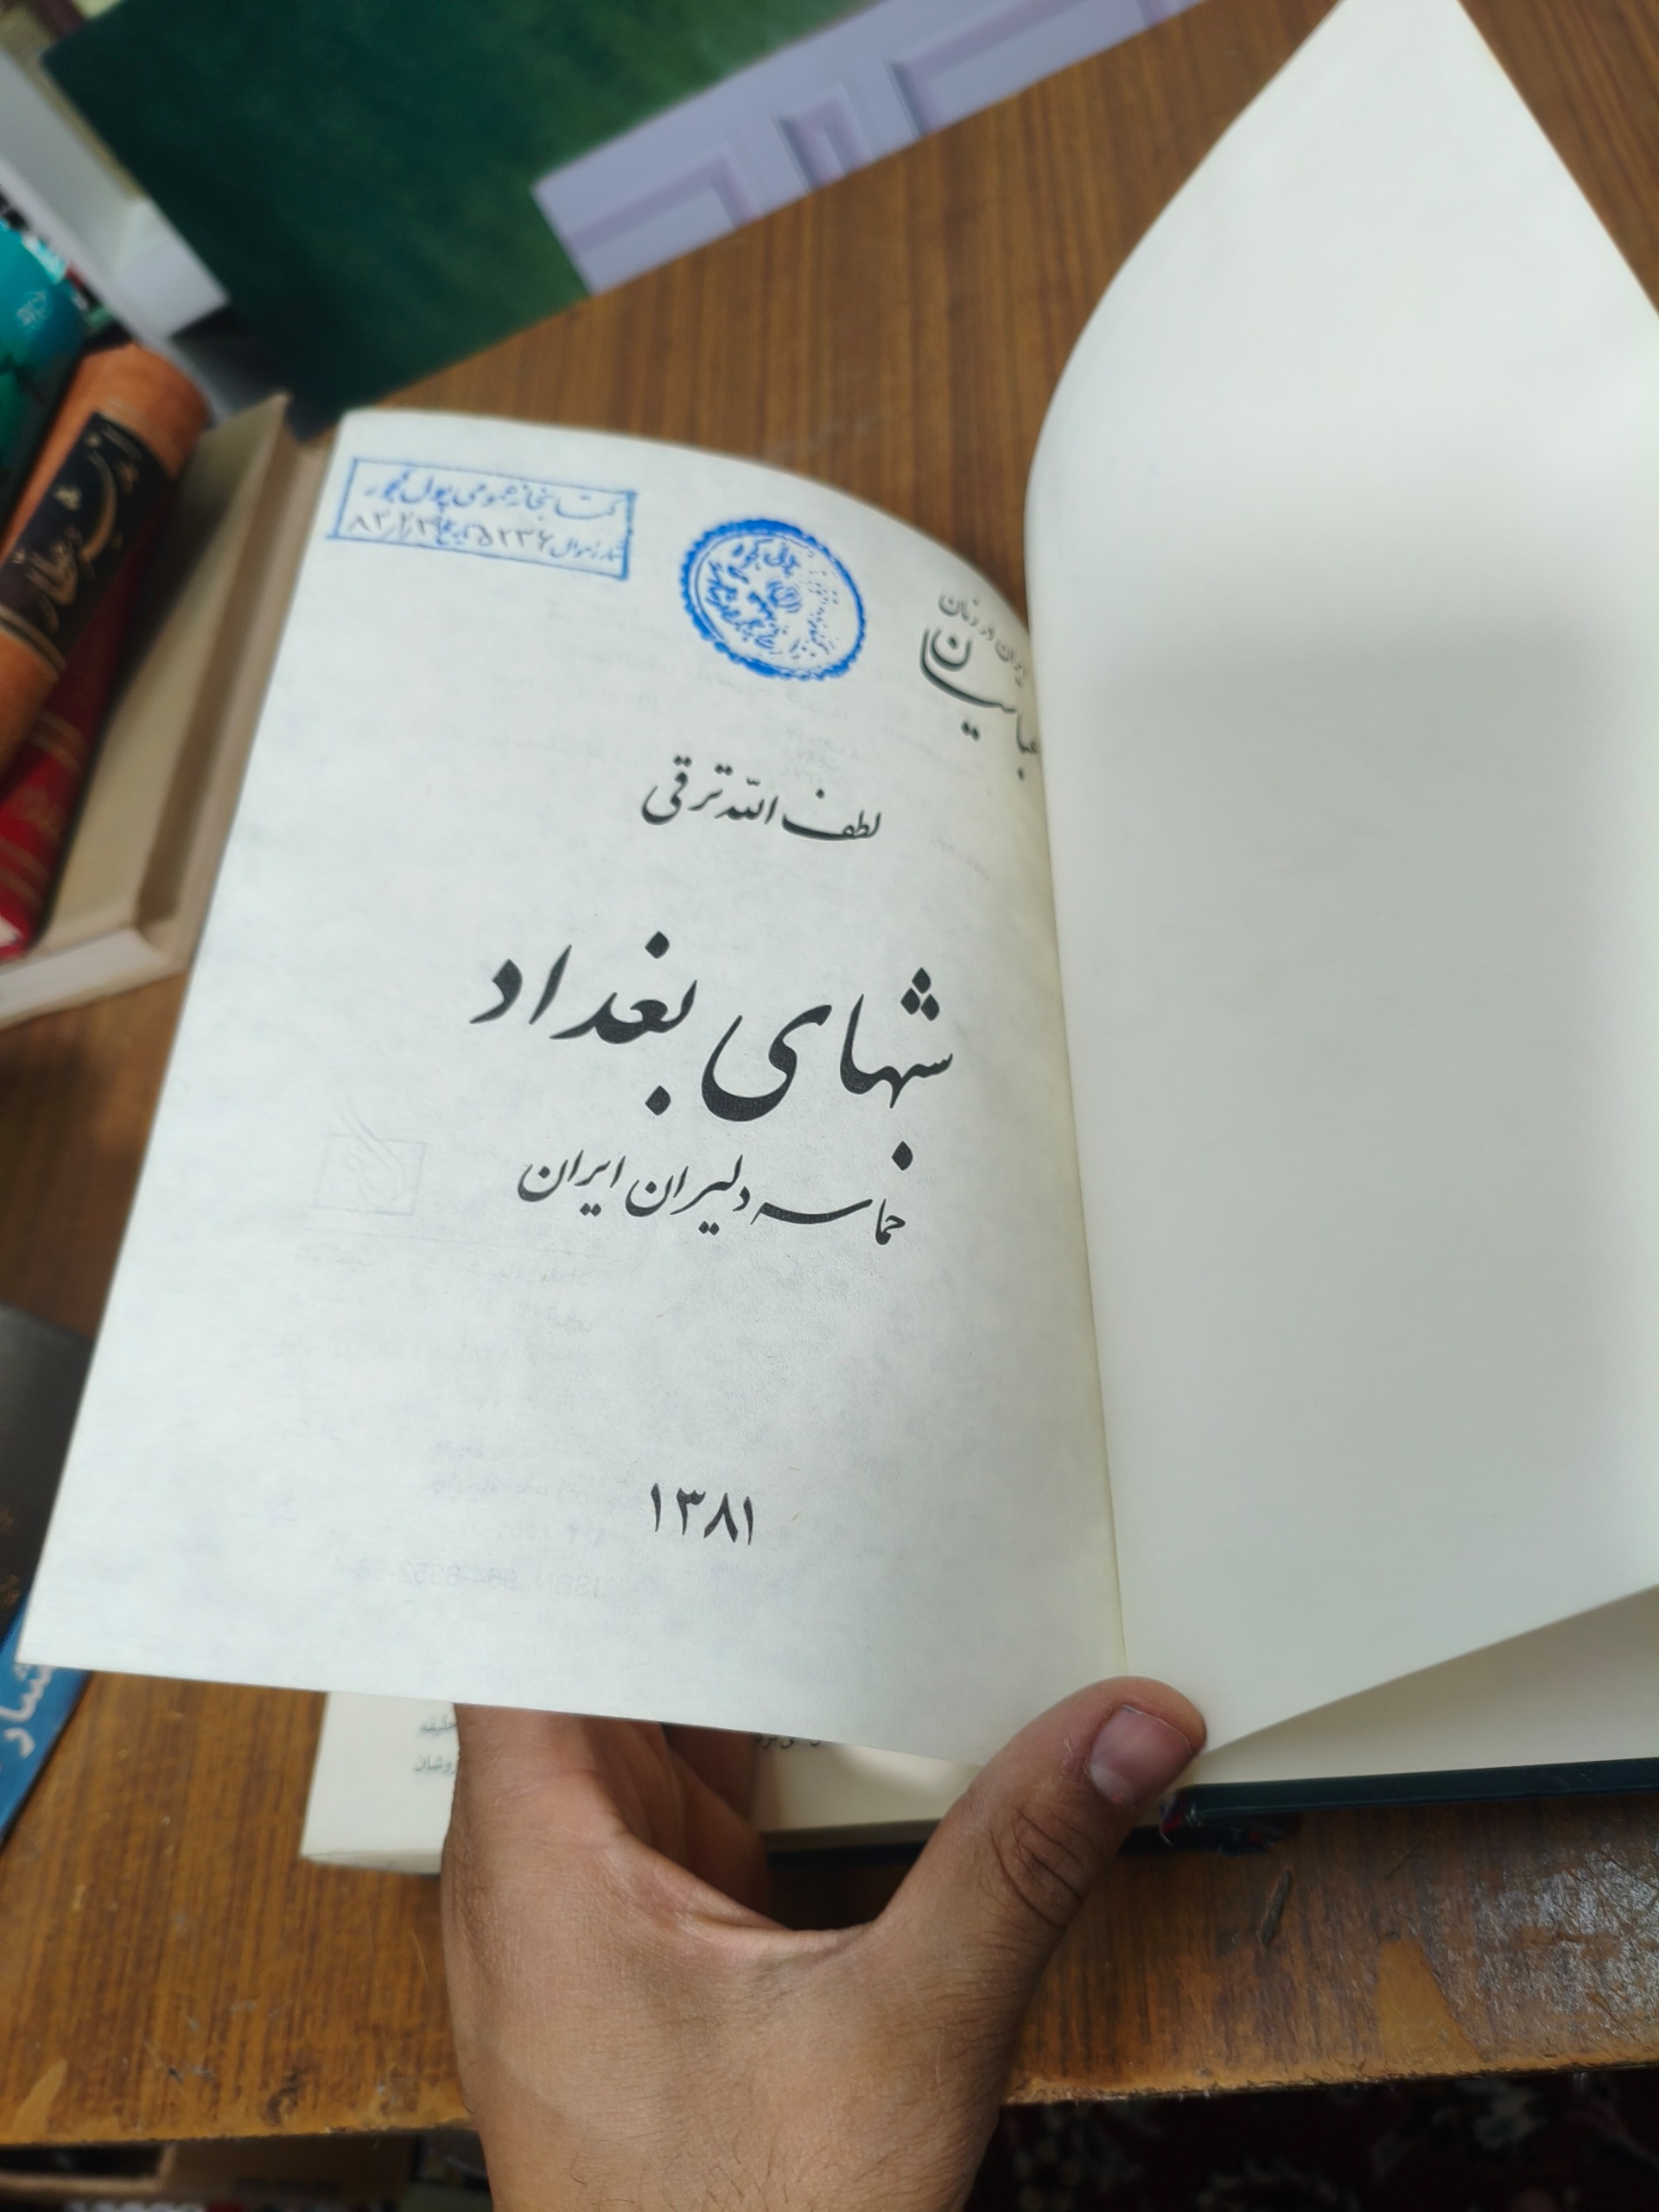 کتابخانه عمومی پول کجور
شماره اموال
ایران در زمان
عباسیان
لطف الله ترقی
شبهای بغداد
حماسه دلیران ایران
۱۳۸۱